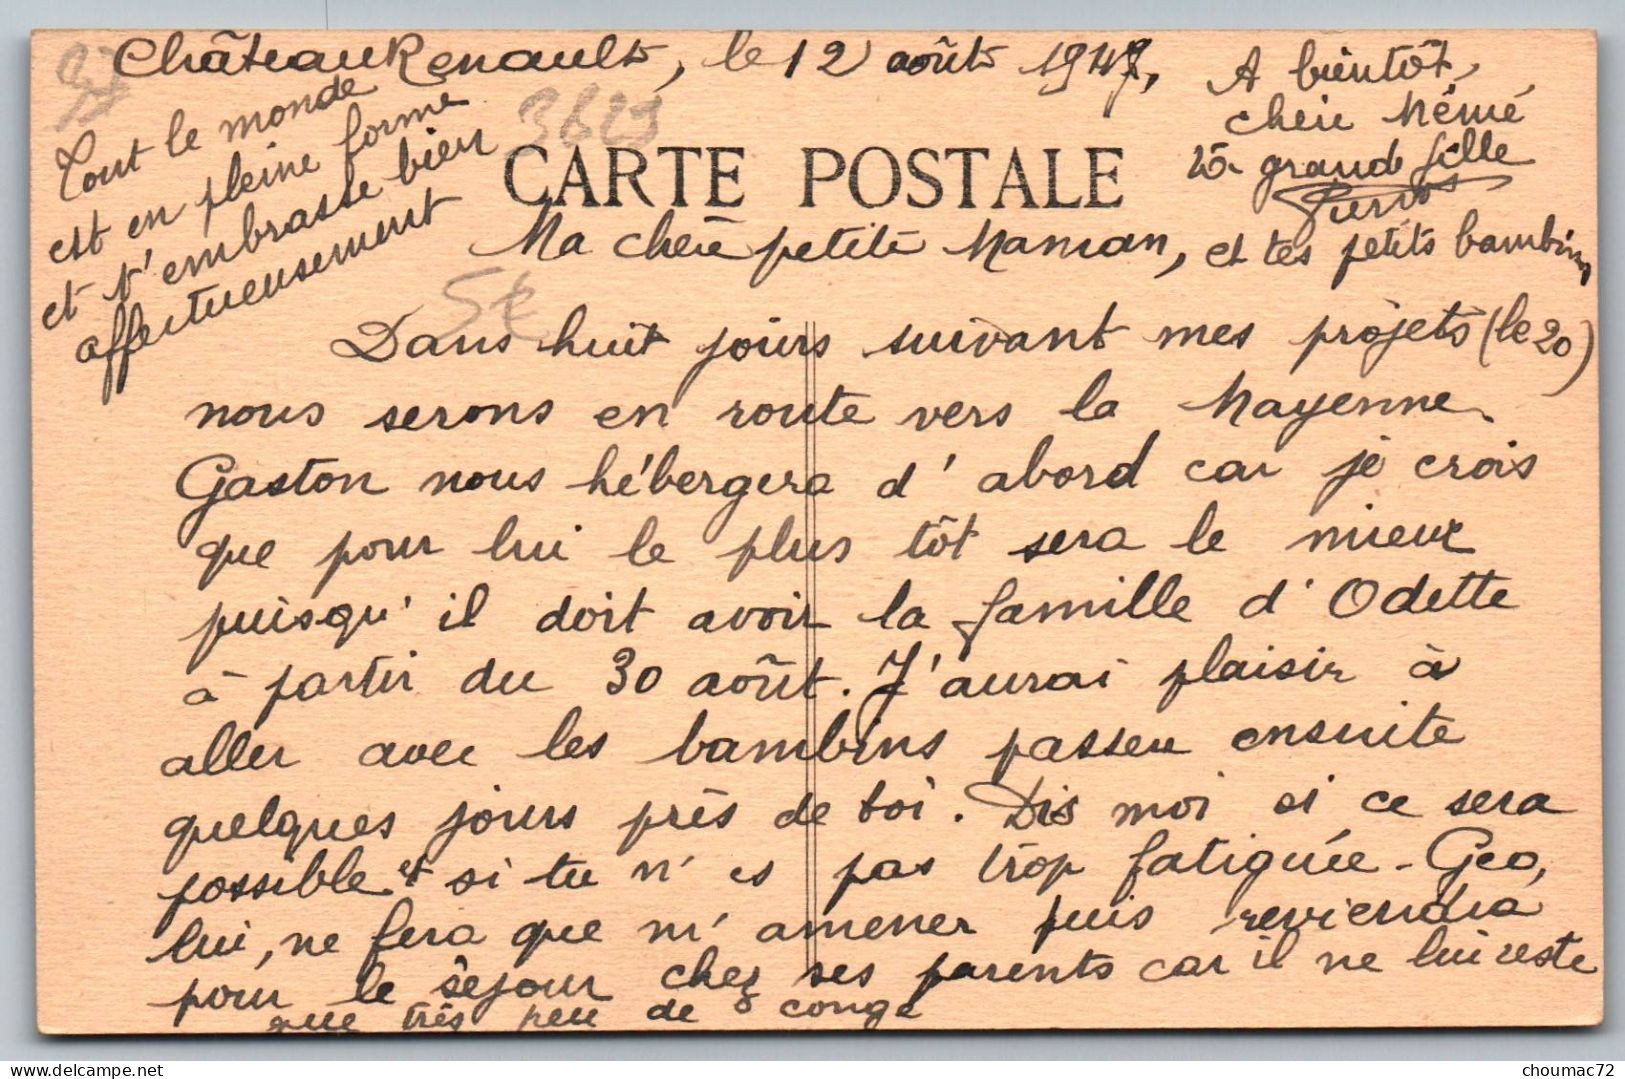 ChâteauRenault, le 12 août 1947,
CARTE POSTALE
Ma chère petite Maman,
Dans huit jours suivant mes projets (le 20)
nous serons en route vers la Mayenne.
Gaston nous hébergera d'abord car je crois
que pour lui le plus tôt sera le mieux
puisqu'il doit avoir la famille d'Odette
à partir du 30 août. J'aurai plaisir à
aller avec les bambins passer ensuite
quelques jours près de toi. Dis moi si ce sera
possible et si tu n'es pas trop fatiguée - Geo,
lui, ne fera que m'amener puis reviendra
pour le séjour chez ses parents car il ne lui reste
que très peu de congé
A bientôt,
chère Mémé
ta grande fille
et tes petits bambins
Tout le monde
est en pleine forme
et t'embrasse bien
affectueusement
3629
5€
delcampe.net
choumac72